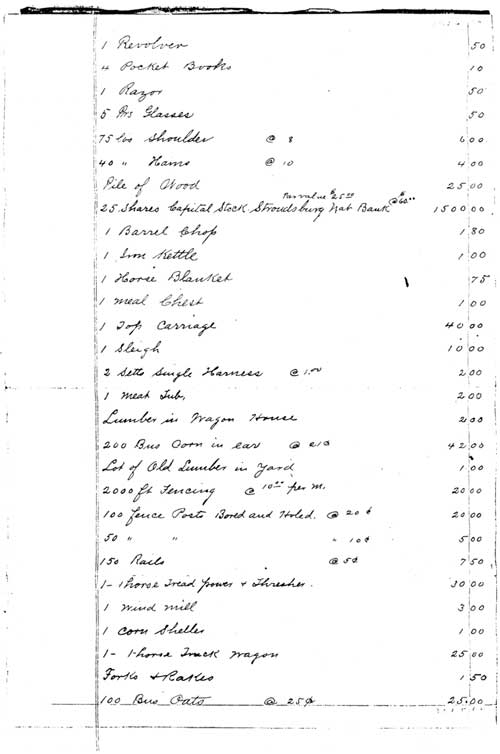 1 Revolver 50
4 Pocket Books 10
1 Razor 50
5 Prs Glasses 50
75 lbs Shoulder @ 8 6 00
40 " Hams @ 10 4 00
Pile of Wood 25 00
25 Shares Capital Stock Stroudsburg Nat Bank par value $25.00 @ $60.00 1500 00
1 Barrel Chop 1 80
1 Iron Kettle 1 00
1 Horse Blanket 75
1 meal Chest 1 00
1 Top Carriage 40 00
1 Sleigh 10 00
2 Setts Single Harness @ 1.00 2 00
1 meat Tub, 2 00
Lumber in Wagon House 2 00
200 Bus Corn in ear @ 21¢ 42 00
Lot of Old Lumber in Yard 1 00
2000 ft Fencing @ 10.00 per m. 20 00
100 fence Posts Bored and Holed. @ 20¢ 20 00
50 " " " 10¢ 5 00
150 Rails @ 5¢ 7 50
1- 1 horse Tread power & Thresher. 30 00
1 wind mill 3 00
1 corn Sheller 1 00
1- 1-horse Truck wagon 25 00
Forks & Rakes 1 50
100 Bus Oats @ 25¢ 25.00